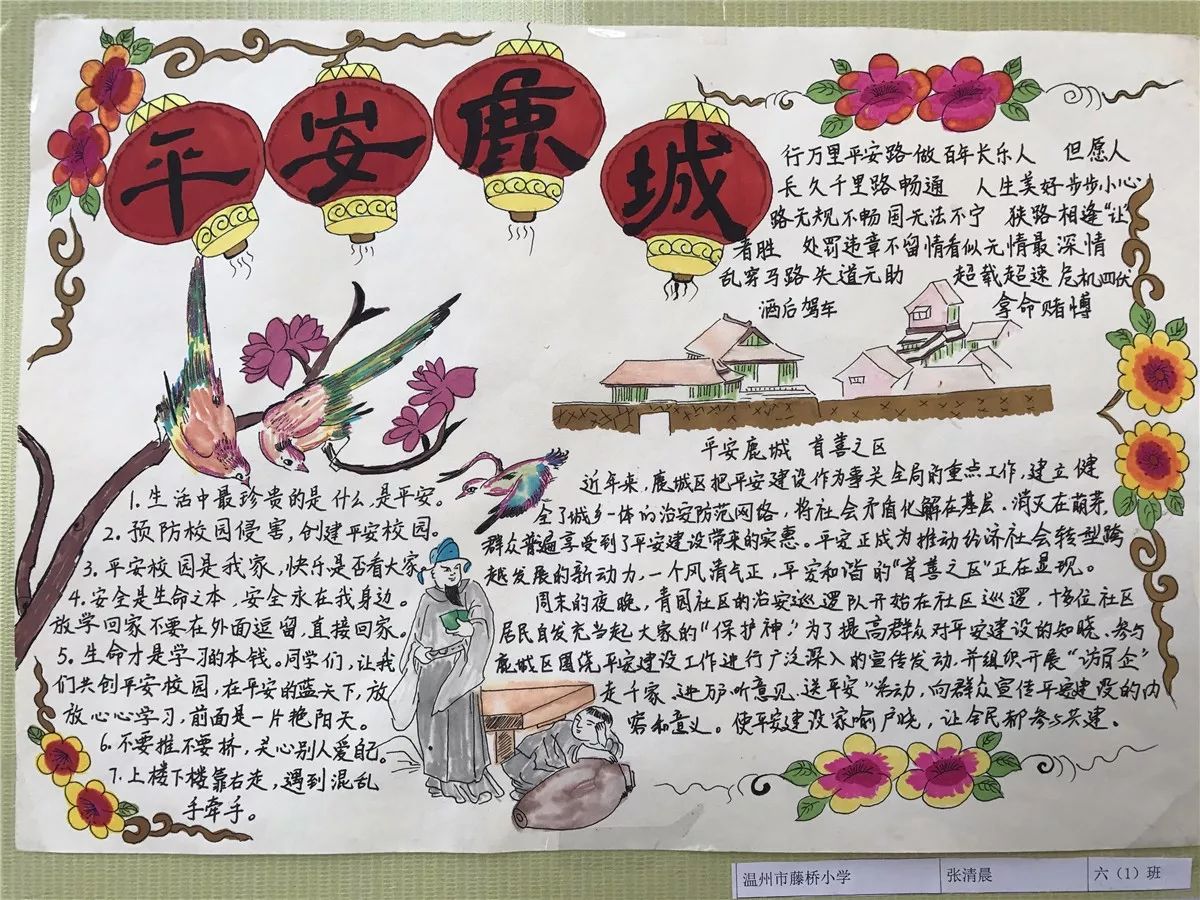 平安鹿城
行万里平安路 做百年长乐人 但愿人
长久千里路畅通 人生美好步步小心
路无规不畅国无法不宁 狭路相逢"让"
者胜 处罚违章不留情看似无情最深情
乱穿马路失道无助 超载超速危机四伏
酒后驾车 拿命赌博
平安鹿城 首善之区
近年来,鹿城区把平安建设作为事关全局的重点工作,建立健
全了城乡一体的治安防范网络,将社会矛盾化解在基层、消灭在萌芽,
群众普遍享受到了平安建设带来的实惠。平安正成为推动经济社会转型跨
越发展的新动力,一个风清气正,平安和谐的"首善之区"正在显现。
周末的夜晚,青园社区的治安巡逻队开始在社区巡逻,十多位社区
居民自发充当起大家的"保护神"!为了提高群众对平安建设的知晓、参与
鹿城区围绕平安建设工作进行广泛深入的宣传发动,并组织开展"访百企"
走千家、进万户听意见、送平安"活动,向群众宣传平安建设的内
容和意义。使平安建设家喻户晓,让全民都参与共建。
1.生活中最珍贵的是什么,是平安。
2.预防校园侵害,创建平安校园。
3.平安校园是我家,快乐是否看大家
4.安全是生命之本,安全永在我身边。
放学回家不要在外面逗留,直接回家。
5.生命才是学习的本钱。同学们,让我
们共创平安校园,在平安的蓝天下,放
放心心学习,前面是一片艳阳天。
6.不要推不要挤,关心别人爱自己。
7.上楼下楼靠右走,遇到混乱
手牵手。
温州市藤桥小学 张清晨 六(1)班